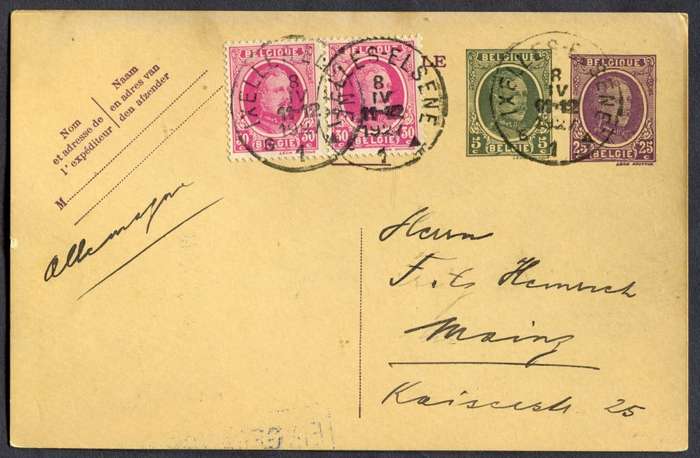 Nom
et adresse de
l'expéditeur
Naam
en adres van
den afzender
M
BELGIQUE
30 30
BELGIË
BELGIQUE
30 30
BELGIË
LE
BELGIQUE
5 5
BELGIË
BELGIQUE
25 25
BELGIË
IXELLES-ELSENE
8
IV
11-12
1927
1
IXELLES-ELSENE
8
IV
11-12
1927
1
IXELLES-ELSENE
8
IV
11-12
1927
1
Allemagne
Herrn
Fritz Heinrich
Mainz
Kaiserstr 25